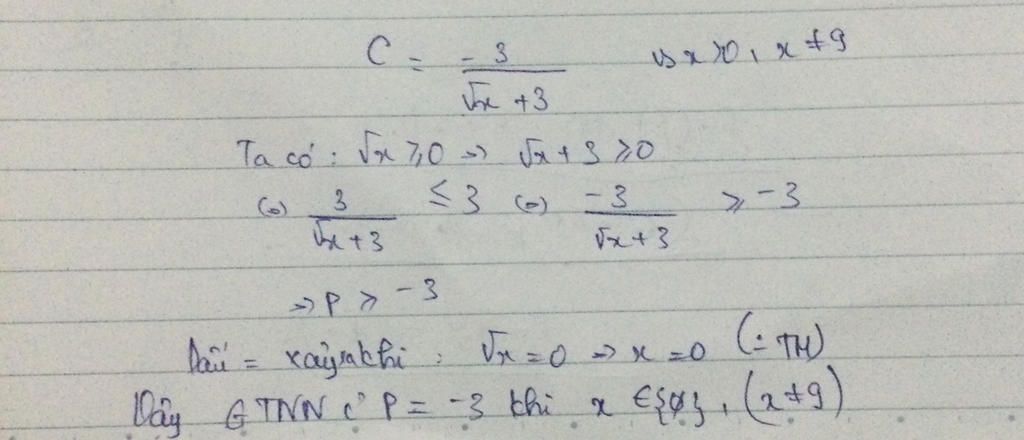 C = -3 / (√x + 3) vs x > 0, x ≠ 9
Ta có: √x ≥ 0 => √x + 3 ≥ 0
(=) 3 / (√x + 3) ≤ 3 (=) -3 / (√x + 3) ≥ -3
=> P ≥ -3
Dấu = xảy ra khi: √x = 0 => x = 0 (: TH)
Vậy GTNN c' P = -3 khi x ∈ {∅}, (x ≠ 9)